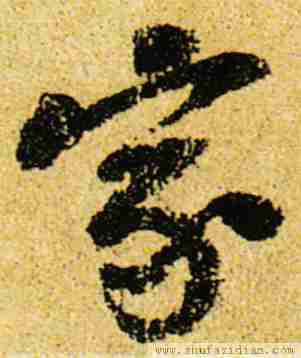 家
www.shufazidian.com